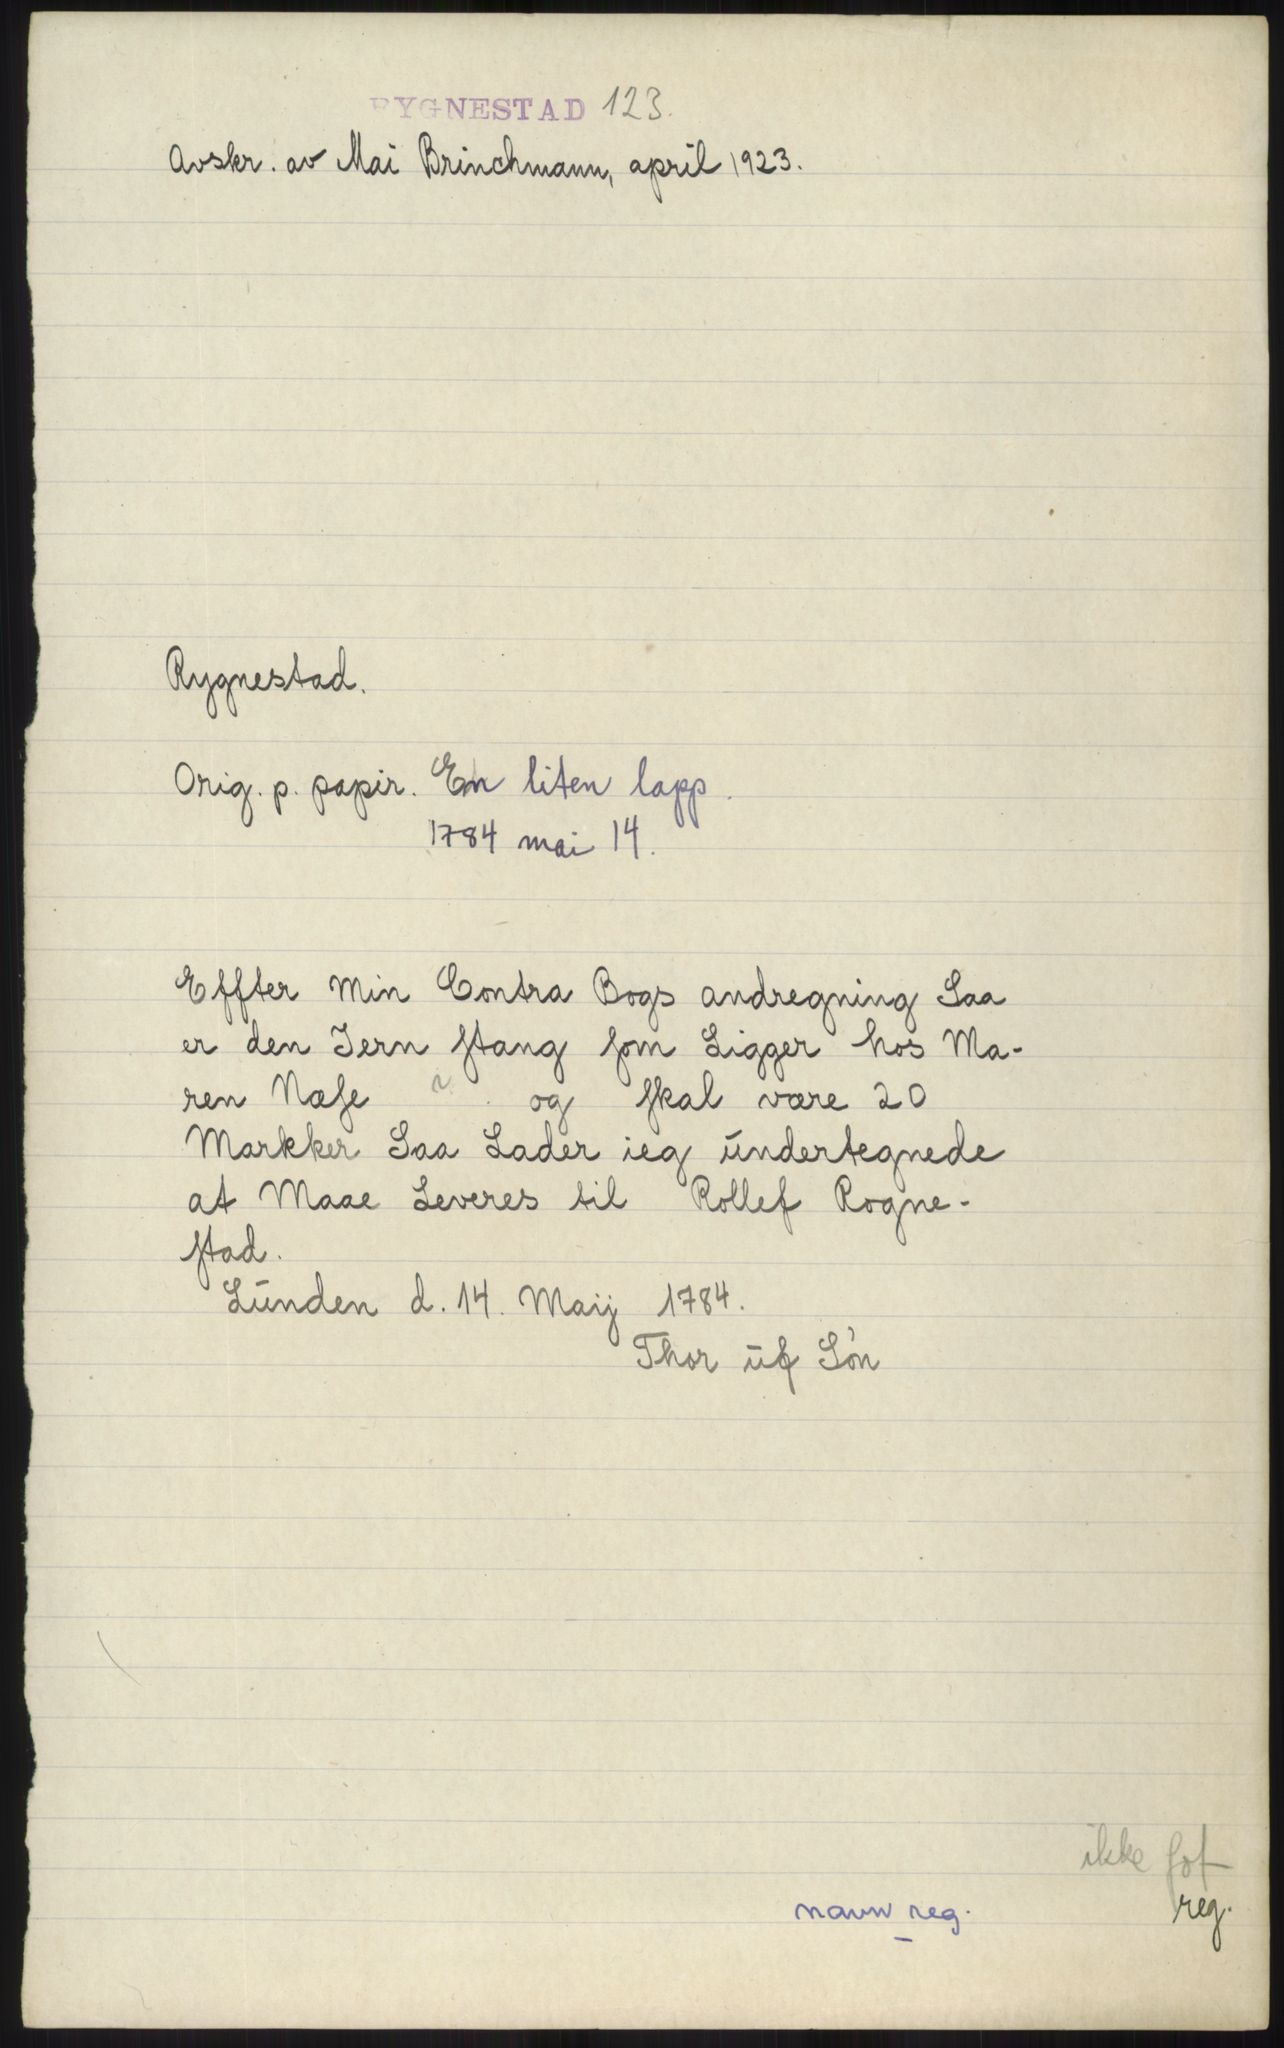 RYGNESTAD 123.
Avskr. av Mai Brinchmann, april 1923.
Rygnestad.
Orig. p. papir. En liten lapp.
1784 mai 14.
Effter Min Contra Bogs andregning Saa
er den Jern ſtang ſom Ligger hos Ma-
ren Næſe og ſkal være 20
Markker Saa Lader ieg ūndertegnede
at Maae Leveres til Rollef Rogne-
ſtad.
Lūnden d. 14. Maij 1784.
Thor Sòn
navn reg.
ikke fot
reg.